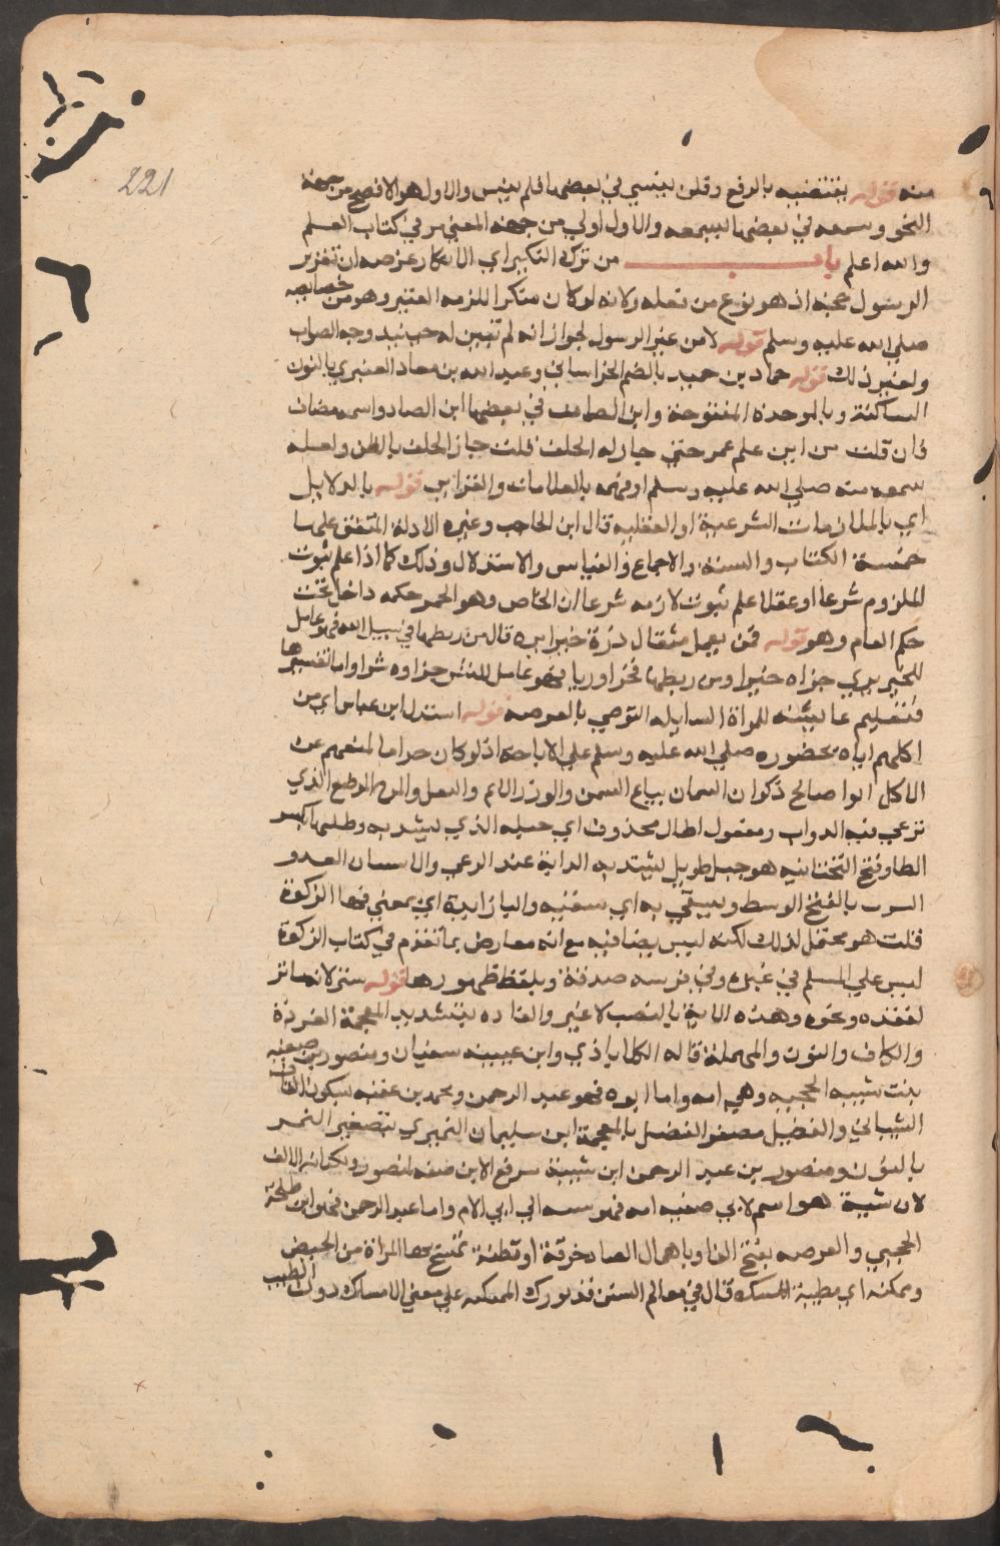 221
منه قوله يقتضيه بالرفع وقلن ينسي في بعضها فلم ينس والاول هو الافصح من جهة
النحو وسمعه في بعضها ليسمعه والاول اولي من جهة المعني مر في كتاب العلم
والله اعلم باب من ترك النكير اي الانكار غرضه ان تقرير
الرسول حجة اذ هو نوع من فعله ولانه لو كان منكرا للزمه التغيير وهو من خصايصه
صلي الله عليه وسلم قوله لا من غير الرسول لجواز انه لم تبين له حينيد وجه الصواب
ولغير ذلك قوله حماد بن حميد بالضم الخراساني وعبيد الله بن معاد العنبري بالنون
الساكنة وبالموحدة المفتوحة وابن الصايد في بعضها ابن الصاد واسمه صاف
فان قلت من اين علم عمر حتي جاز له الحلف قلت جاز الحلف بالظن ولعله
سمعه منه صلي الله عليه وسلم او فهمه بالعلامات والقراين قوله بالدلايل
اي بالملازمات الشرعية او العقلية قال ابن الحاجب وغيره الادلة المتفق عليها
خمسة الكتاب والسنة والاجماع والقياس والاستدلال وذلك كما اذا علم ثبوت
الملزوم شرعا او عقلا علم ثبوت لازمه شرعا ان الخاص وهو الحمر حكمه داخل تحت
حكم العام وهو قوله فمن يعمل مثقال ذرة خيرا يره قال من ربطها في سبيل الله فهو عامل
للخير يري جزاه خيرا ومن ربطها فخرا وريا فهو عامل للشر جزاوه شرا واما تفسيرها
فتعليم عايشة للمراة السايلة التوضي بالفرصه قوله استدل ابن عباس اي من
اكلهم اياه بحضوره صلي الله عليه وسلم علي الاباحة اذ لو كان حراما لمنعهم عن
الاكل ابوا صالح ذكوان السمان بياع السمن والوزر الاثم والمرج الموضع الذي
ترعي فيه الدواب ومفعول اطال محذوف اي حبله الذي ليشد به وطيلها بكسر
الطا وفتح التحتانيه هو حبل طويل ليشد به الدابة عند الرعي والاستنان العدو
بالفتح الوسط ويسقي به اي يسقيه واليا زايدة اي يعني فيها الزكوة
قلت هو محتمل لذلك لكنه ليس بضا فيه مع انه معارض بما تقدم في كتاب الزكوة
ليس علي المسلم في عبده وفي فرسه صدقة وبلفظ ظهورها قوله ستر لانه ساتر
لفقده ونحوه وهذه الاية بالنصب لا غير والفاذه بتشديد المعجمة الفردة
والكاف والنون والمهملة قاله الكلاباذي وابن عيينه سفيان ومنصور بن صفيه
بنت شيبه الحجبيه وهي امه واما ابوه فهو عبد الرحمن ومحمد بن عقبه بسكون القاف
الشيباني والفضيل مصغر الفضل بالمعجمة ابن سليمان النميري بتصغير النمر
بالنون ومنصور بن عبد الرحمن ابن شيبة برفع الابن صفه لمنصور وبكتابة الالف
لان شيبة هو اسم لابي صفيه امه فهو نسبه الي ابي الام واما عبد الرحمن فهو ابن طلحة
الحجبي والفرصه بفتح الفا وباهمال الصاد خرقة او قطنة تمسح بها المراة من الحيض
وممسكه اي مطيبة بالمسك قال في معالم السنن قد تورك الممسكه علي معني الامساك دون الطيب